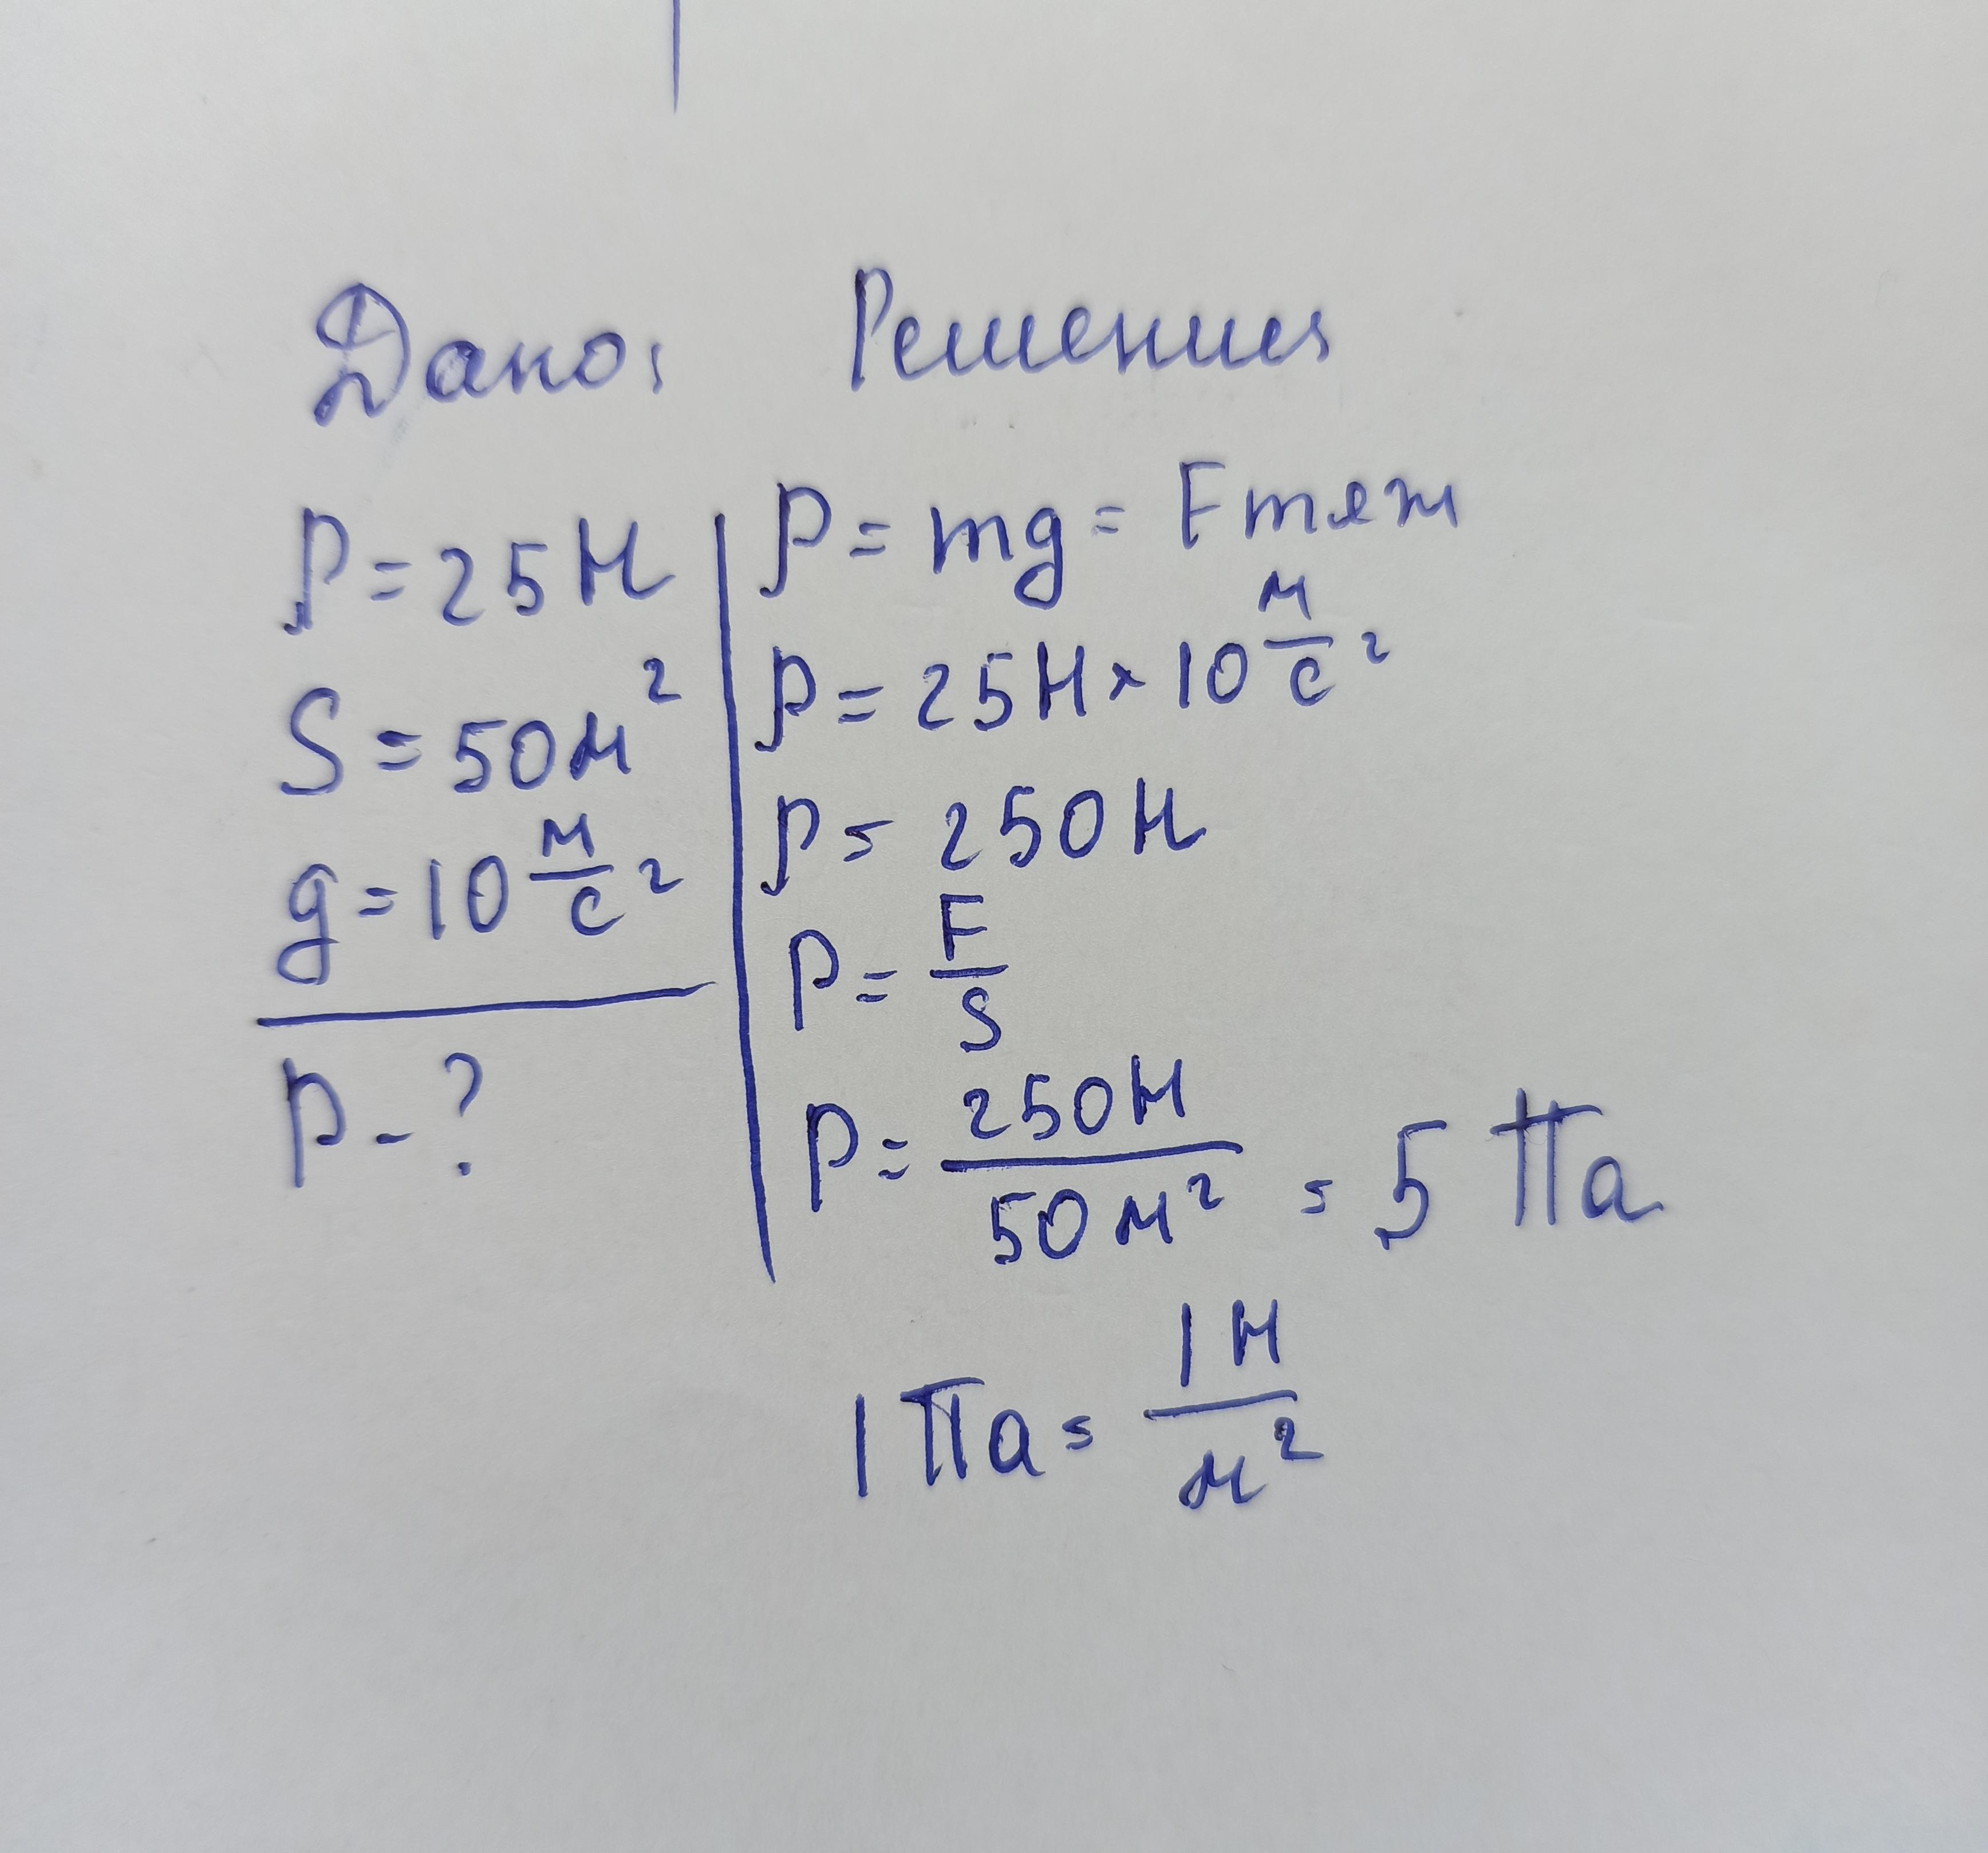 Дано: Решения
P = 25Н
S = 50м²
g = 10 м/с²
p - ?
P = mg = Fтяж
P = 25Н × 10 м/с²
P = 250Н
p = F/S
p = 250Н/50м² = 5 Па
1 Па = 1Н/м²